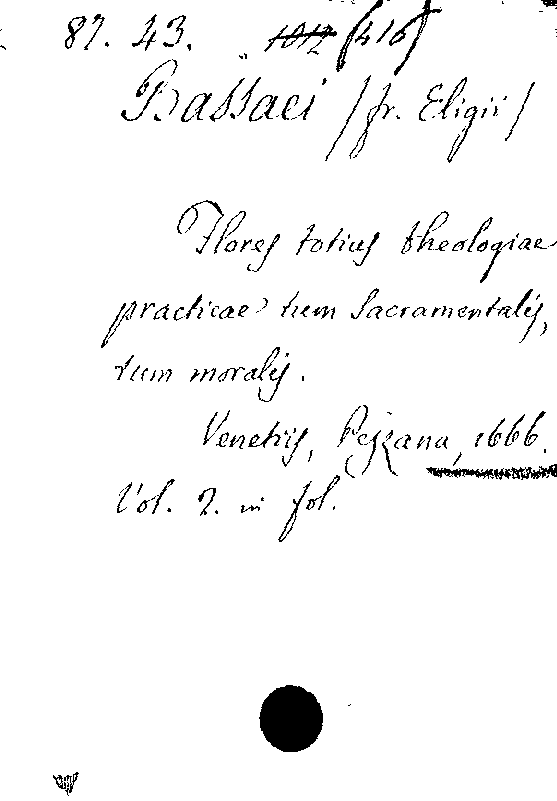 87. 43. 1012 (416)
Bassaei /fr. Eligii/
Flores totius theologiae
practicae tum Sacramentalis,
tum moralis.
Venetiis, Pezzana, 1666.
Vol. 2. in fol.